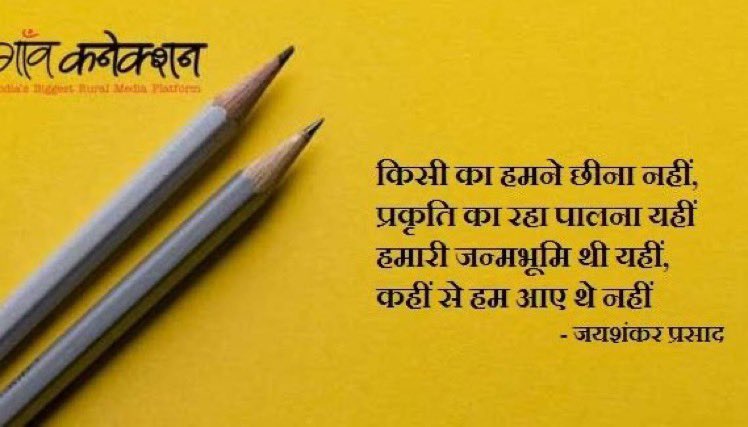 गाँव कनेक्शन
India's Biggest Rural Media Platform
किसी का हमने छीना नहीं,
प्रकृति का रहा पालना यहीं
हमारी जन्मभूमि थी यहीं,
कहीं से हम आए थे नहीं
- जयशंकर प्रसाद